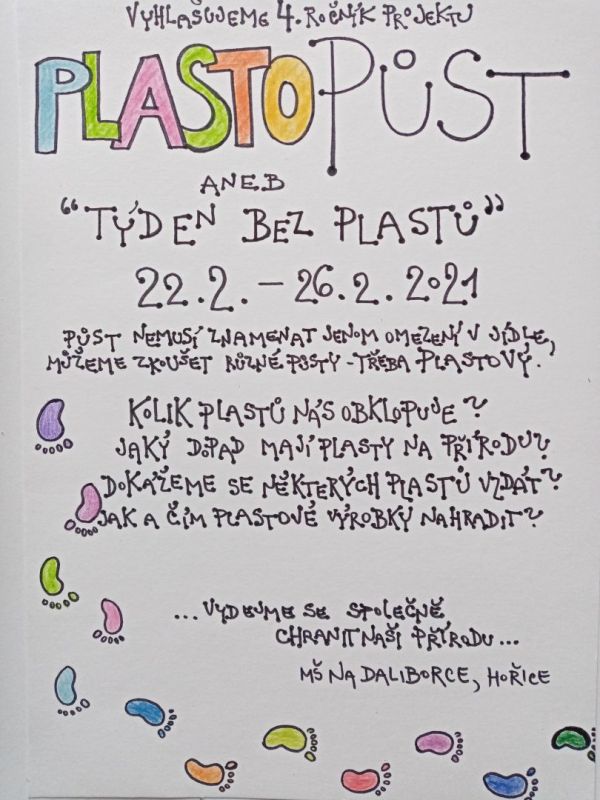 VYHLAŠUJEME 4. ROČNÍK PROJEKTU
PLASTOPŮST
ANEB
“TÝDEN BEZ PLASTŮ”
22.2. – 26.2. 2021
PŮST NEMUSÍ ZNAMENAT JENOM OMEZENÍ V JÍDLE,
MŮŽEME ZKOUŠET RŮZNÉ PŮSTY - TŘEBA PLASTOVÝ.
KOLIK PLASTŮ NÁS OBKLOPUJE?
JAKÝ DOPAD MAJÍ PLASTY NA PŘÍRODU?
DOKÁŽEME SE NĚKTERÝCH PLASTŮ VZDÁT?
JAK A ČÍM PLASTOVÉ VÝROBKY NAHRADIT?
...VYDEJME SE SPOLEČNĚ
CHRANIT NAŠI PŘÍRODU...
MŠ NA DALIBORCE, HOŘICE